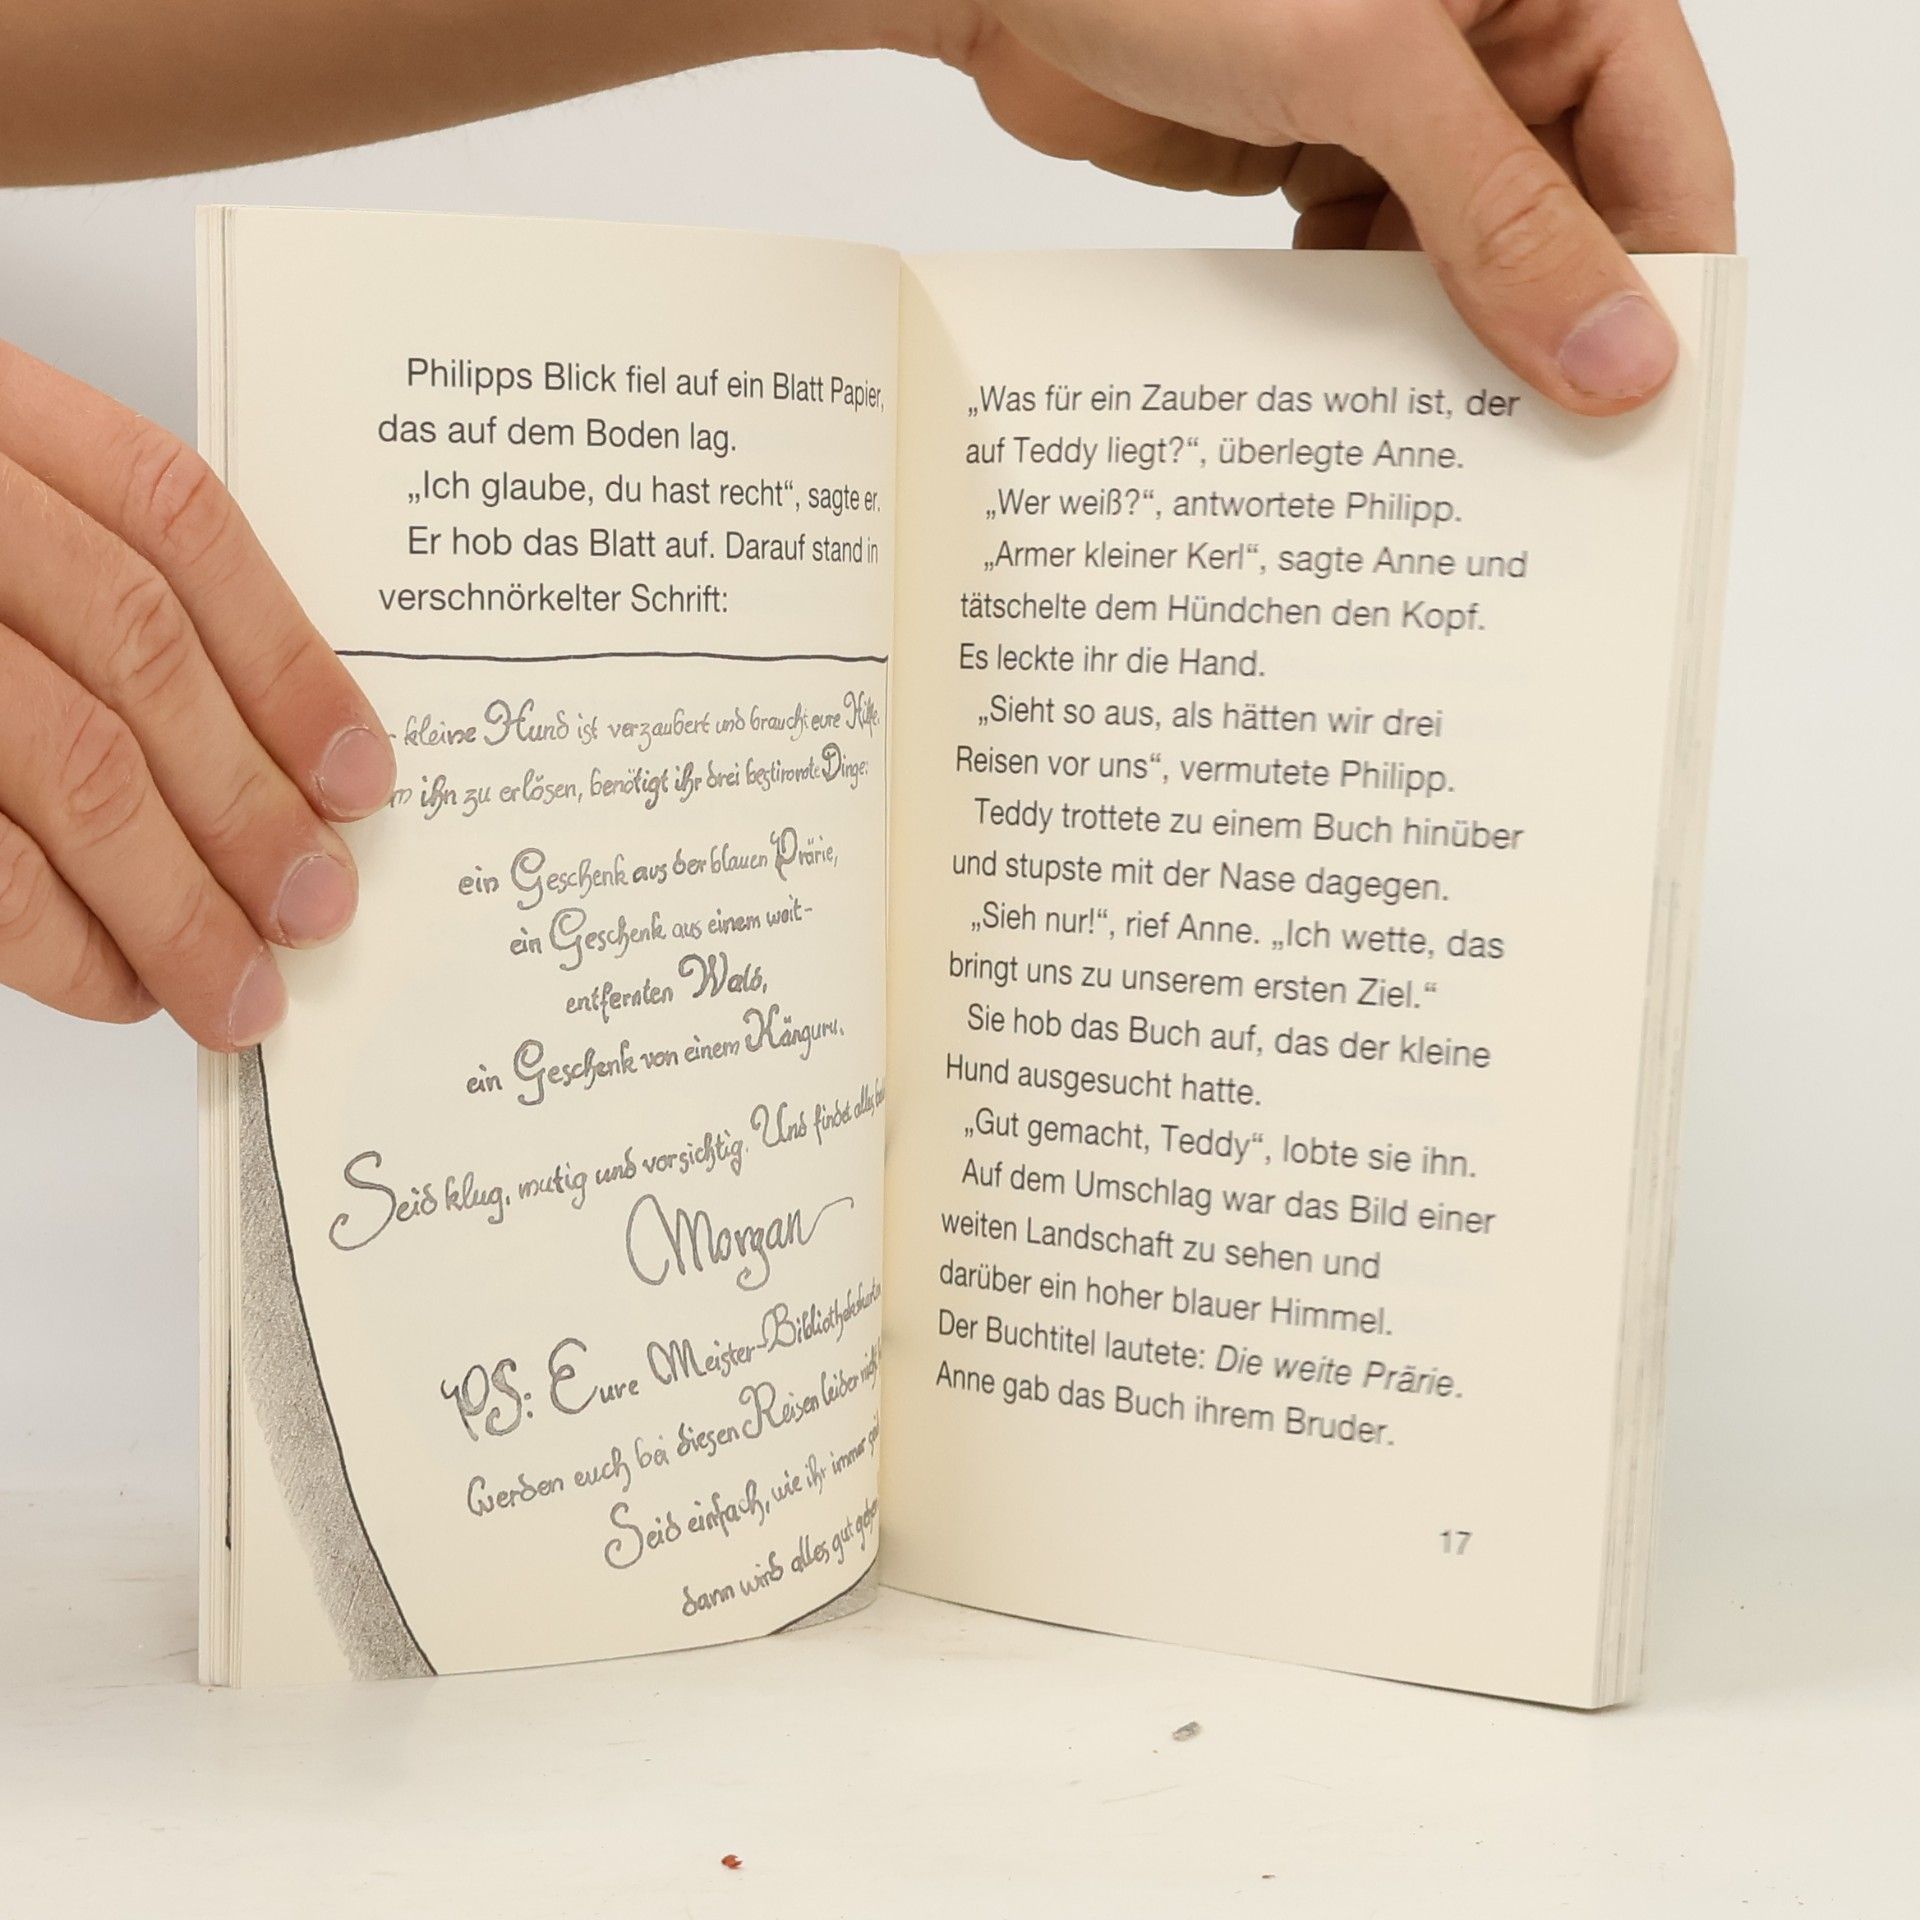 Philipps Blick fiel auf ein Blatt Papier,
das auf dem Boden lag.
„Ich glaube, du hast recht“, sagte er.
Er hob das Blatt auf. Darauf stand in
verschnörkelter Schrift:
kleine Hund ist verzaubert und braucht eure Hilfe.
ihn zu erlösen, benötigt ihr drei bestimmte Dinge:
ein Geschenk aus der blauen Prärie,
ein Geschenk aus einem weit-
entfernten Wald,
ein Geschenk von einem Känguru.
Seid klug, mutig und vorsichtig. Und findet alles
Morgan
PS: Eure Meister-Bibliothekskarten
werden euch bei diesen Reisen leider nicht
Seid einfach, wie ihr immer
dann wird alles gut gehen
„Was für ein Zauber das wohl ist, der
auf Teddy liegt?“, überlegte Anne.
„Wer weiß?“, antwortete Philipp.
„Armer kleiner Kerl“, sagte Anne und
tätschelte dem Hündchen den Kopf.
Es leckte ihr die Hand.
„Sieht so aus, als hätten wir drei
Reisen vor uns“, vermutete Philipp.
Teddy trottete zu einem Buch hinüber
und stupste mit der Nase dagegen.
„Sieh nur!“, rief Anne. „Ich wette, das
bringt uns zu unserem ersten Ziel.“
Sie hob das Buch auf, das der kleine
Hund ausgesucht hatte.
„Gut gemacht, Teddy“, lobte sie ihn.
Auf dem Umschlag war das Bild einer
weiten Landschaft zu sehen und
darüber ein hoher blauer Himmel.
Der Buchtitel lautete: Die weite Prärie.
Anne gab das Buch ihrem Bruder.
17